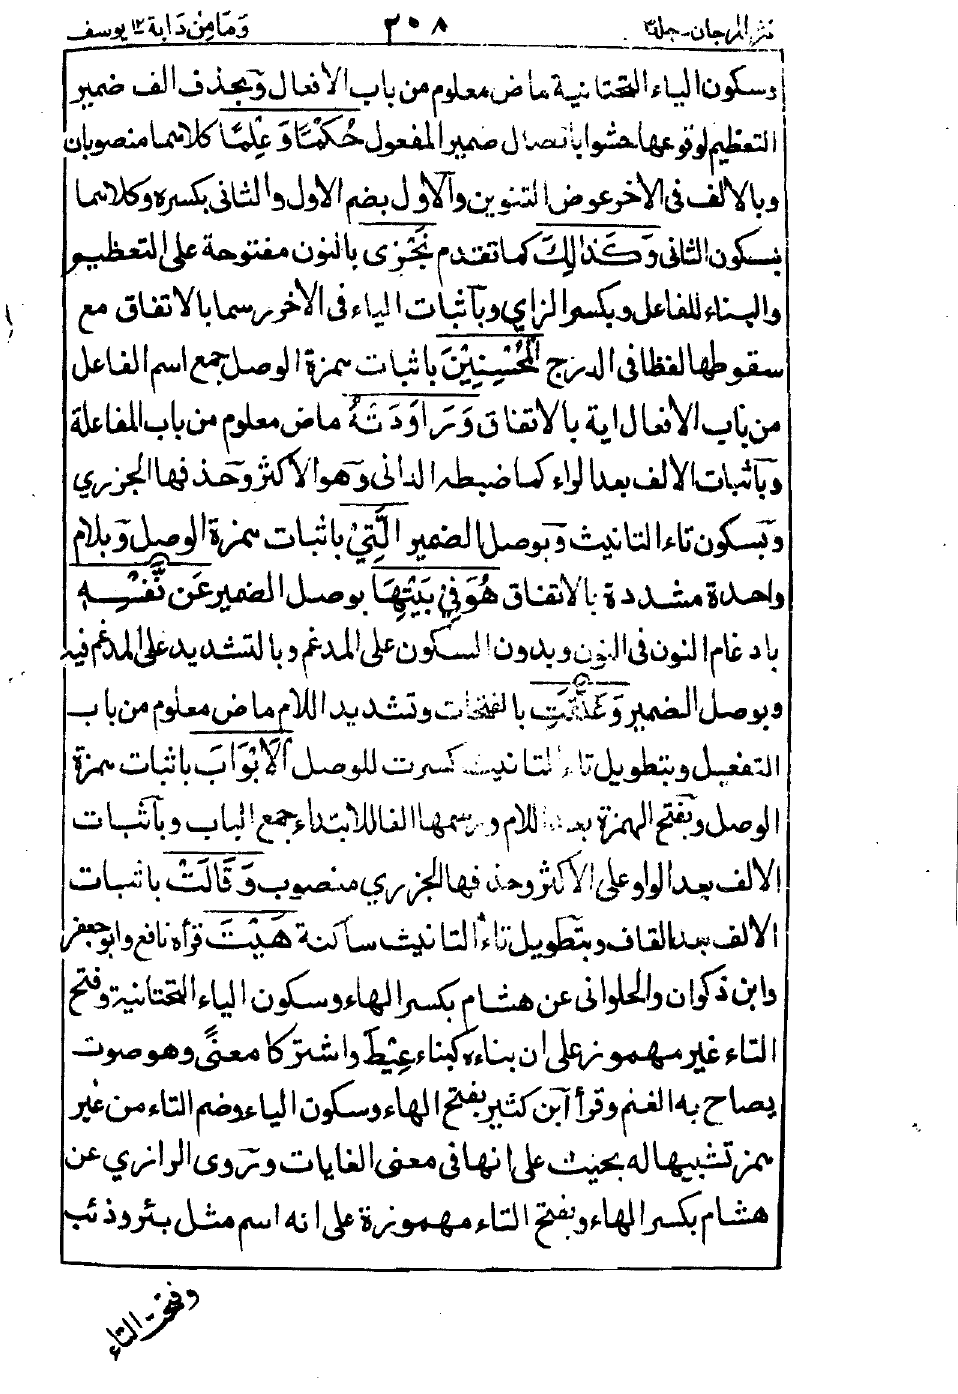 نثر المرجان - جلد ٣
٣٠٨
وَمَا مِن دَابة ١٢ يوسف
وسكون الياء التحتانية ماض معلوم من باب الافعال وبحذف الف ضمير
التعظيم لوقوعها حشوا باتصال ضمير المفعول حُكْمًا وَعِلْمًا كلاهما منصوبان
وبالالف فى الاخر عوض التنوين والاول بضم الاول والثانى بكسره وكلاهما
بسكون الثانى وَكَذٰلِكَ كما تقدم نَجْزِى بالنون مفتوحة على التعظيم
والبناء للفاعل وبكسر الزاي وباثبات الياء فى الاخر رسما بالاتفاق مع
سقوطها لفظا فى الدرج الْمُحْسِنِيْنَ باثبات همزة الوصل جمع اسم الفاعل
من باب الافعال اية بالاتفاق وَرَاوَدَتْهُ ماض معلوم من باب المفاعلة
وباثبات الالف بعد الراء كما ضبطه الدانى وهو الاكثر وحذفها الجزري
وبسكون تاء التانيث وبوصل الضمير الَّتِيْ باثبات همزة الوصل وبلام
واحدة مشددة بالاتفاق هُوَ فِي بَيْتِهَا بوصل الضمير عَن نَّفْسِهٖ
بادغام النون فى النون وبدون السكون على المدغم وبالتشديد على المدغم فيه
وبوصل الضمير وَغَلَّقَتِ بالفتحات وتشديد اللام ماض معلوم من باب
التفعيل وبتطويل تاء التانيث كسرت للوصل الْاَبْوَابَ باثبات همزة
الوصل وبفتح الهمزة بعد اللام ورسمها الفا للابتداء جمع الباب وباثبات
الالف بعد الواو على الاكثر وحذفها الجزري منصوب وَقَالَتْ باثبات
الالف بعد القاف وبتطويل تاء التانيث ساكنة هَيْتَ قرأه نافع وابو جعفر
وابن ذكوان والحلوانى عن هشام بكسر الهاء وسكون الياء التحتانية وفتح
التاء غير مهموز على ان بناءه كبناء عِيْطَ واشتركا معنًى وهو صوت
يصاح به الغنم وقرأ ابن كثير بفتح الهاء وسكون الياء وضم التاء من غير
همز تشبيها له بحيث على انها فى معنى الغايات وروى الرازي عن
هشام بكسر الهاء وبفتح التاء مهموزة على انه اسم مثل بئر وذئب
وفتحت التاء